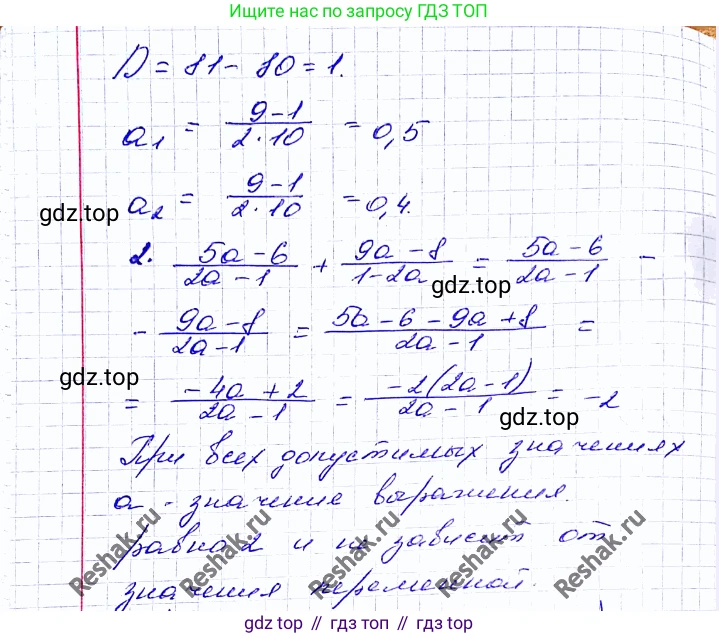 Ищите нас по запросу ГДЗ ТОП
D = 81 - 80 = 1.
a₁ = (9-1)/(2·10) = 0,5
a₂ = (9-1)/(2·10) = 0,4.
gdz.top
2. (5a-6)/(2a-1) + (9a-8)/(1-2a) = (5a-6)/(2a-1) -
gdz.top
- (9a-8)/(2a-1) = (5a-6-9a+8)/(2a-1) =
gdz.top
= (-4a+2)/(2a-1) = (-2(2a-1))/(2a-1) = -2
gdz.top
При всех допустимых значениях
a - значение выражения.
равна 2 и не зависит от
значения переменной.
Reshak.ru
Reshak.ru
Reshak.ru
Reshak.ru
gdz.top // гдз топ // gdz.top